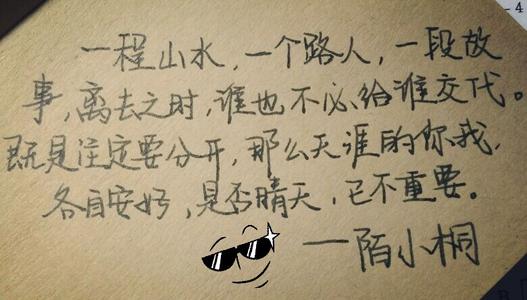 一程山水，一个路人，一段故
事，离去之时，谁也不必给谁交代。
既是注定要分开，那么天涯的你我，
各自安好，是否晴天，已不重要。
——陌小桐
-4